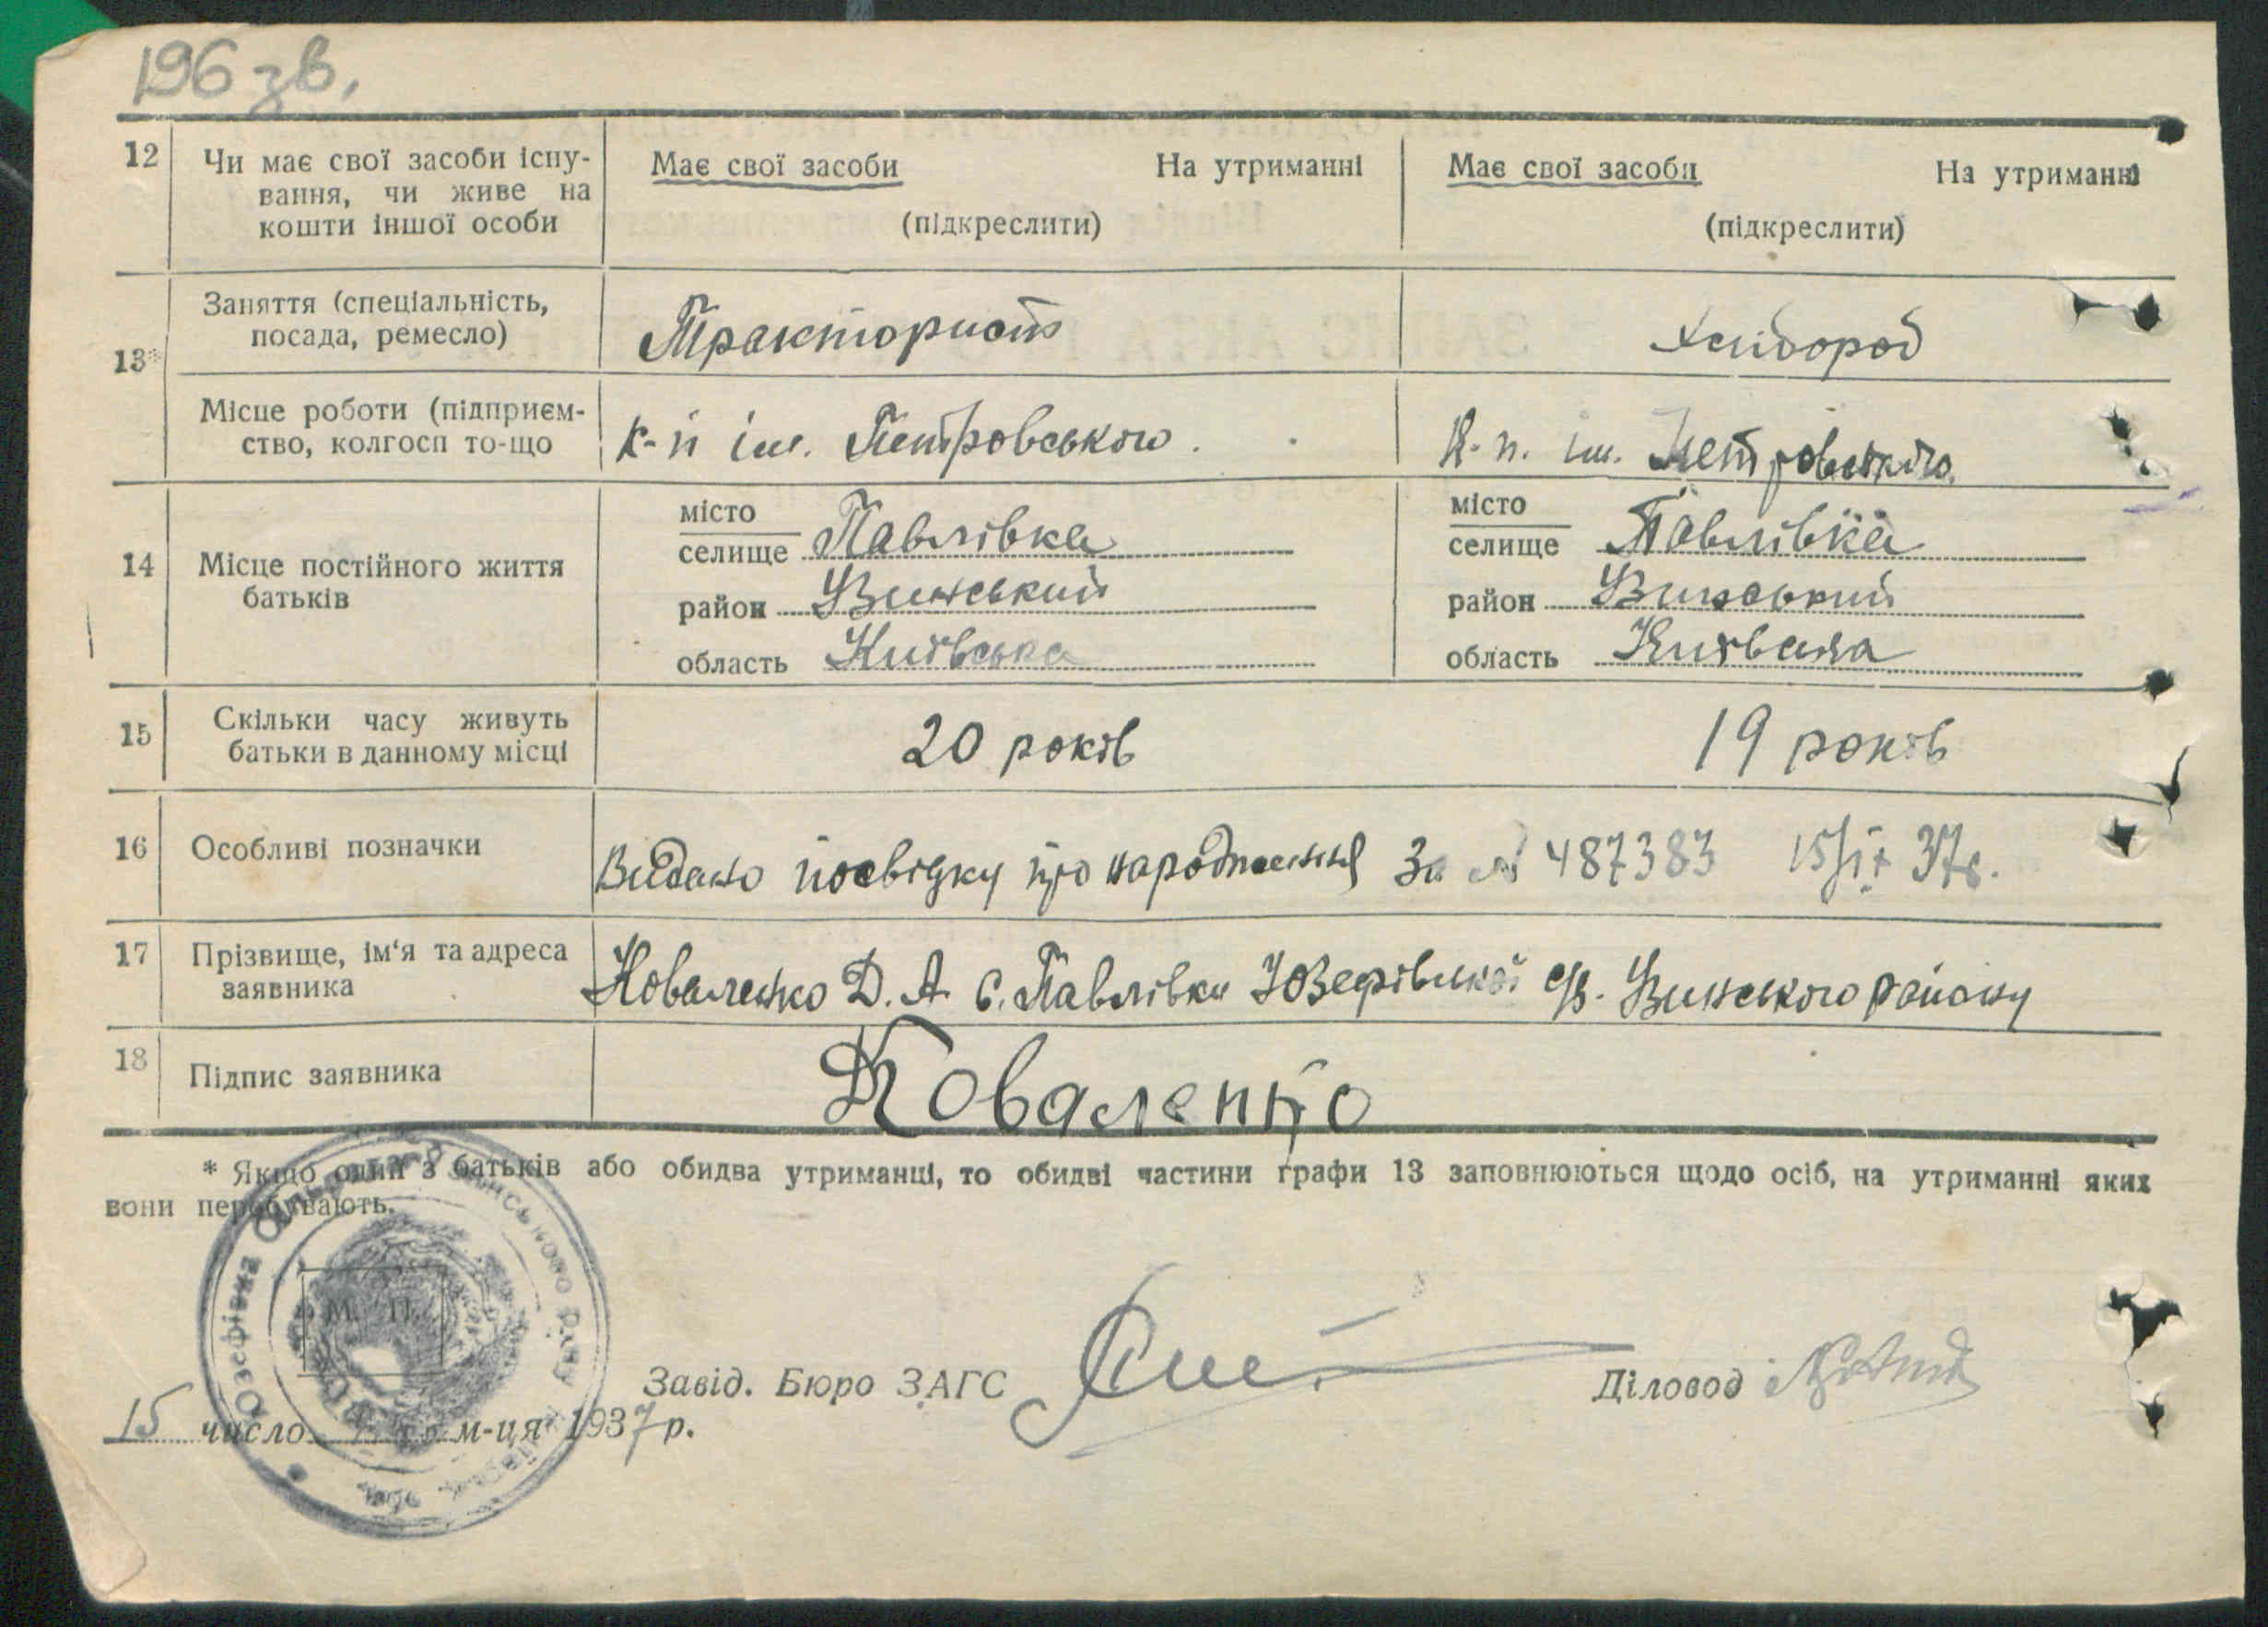 196 зв.
12 Чи має свої засоби існу- Має свої засоби На утриманні Має свої засоби На утриманні
вання, чи живе на
кошти іншої особи (підкреслити) (підкреслити)
13* Заняття (спеціальність,
посада, ремесло) Тракторист Хлібороб
Місце роботи (підприєм-
ство, колгосп то-що к-п ім. Петровського. К-п. ім. Петровського.
14 Місце постійного життя
батьків
місто
селище Павлівка
район Винський
область Київська
місто
селище Павлівка
район Винський
область Київська
15 Скільки часу живуть
батьки в данному місці 20 років 19 років
16 Особливі позначки Видано посвідку про народження за № 487383 15/ІХ 37р.
17 Прізвище, ім'я та адреса
заявника Коваленко Д. А. с. Павлівки Юзефівської с/р. Винського району
18 Підпис заявника Коваленко
* Якщо один з батьків або обидва утриманці, то обидві частини графи 13 заповнюються щодо осіб, на утриманні яких
вони перебувають.
Юзефівка
М. П.
Завід. Бюро ЗАГС Діловод
15 число м-ця 1937 р.